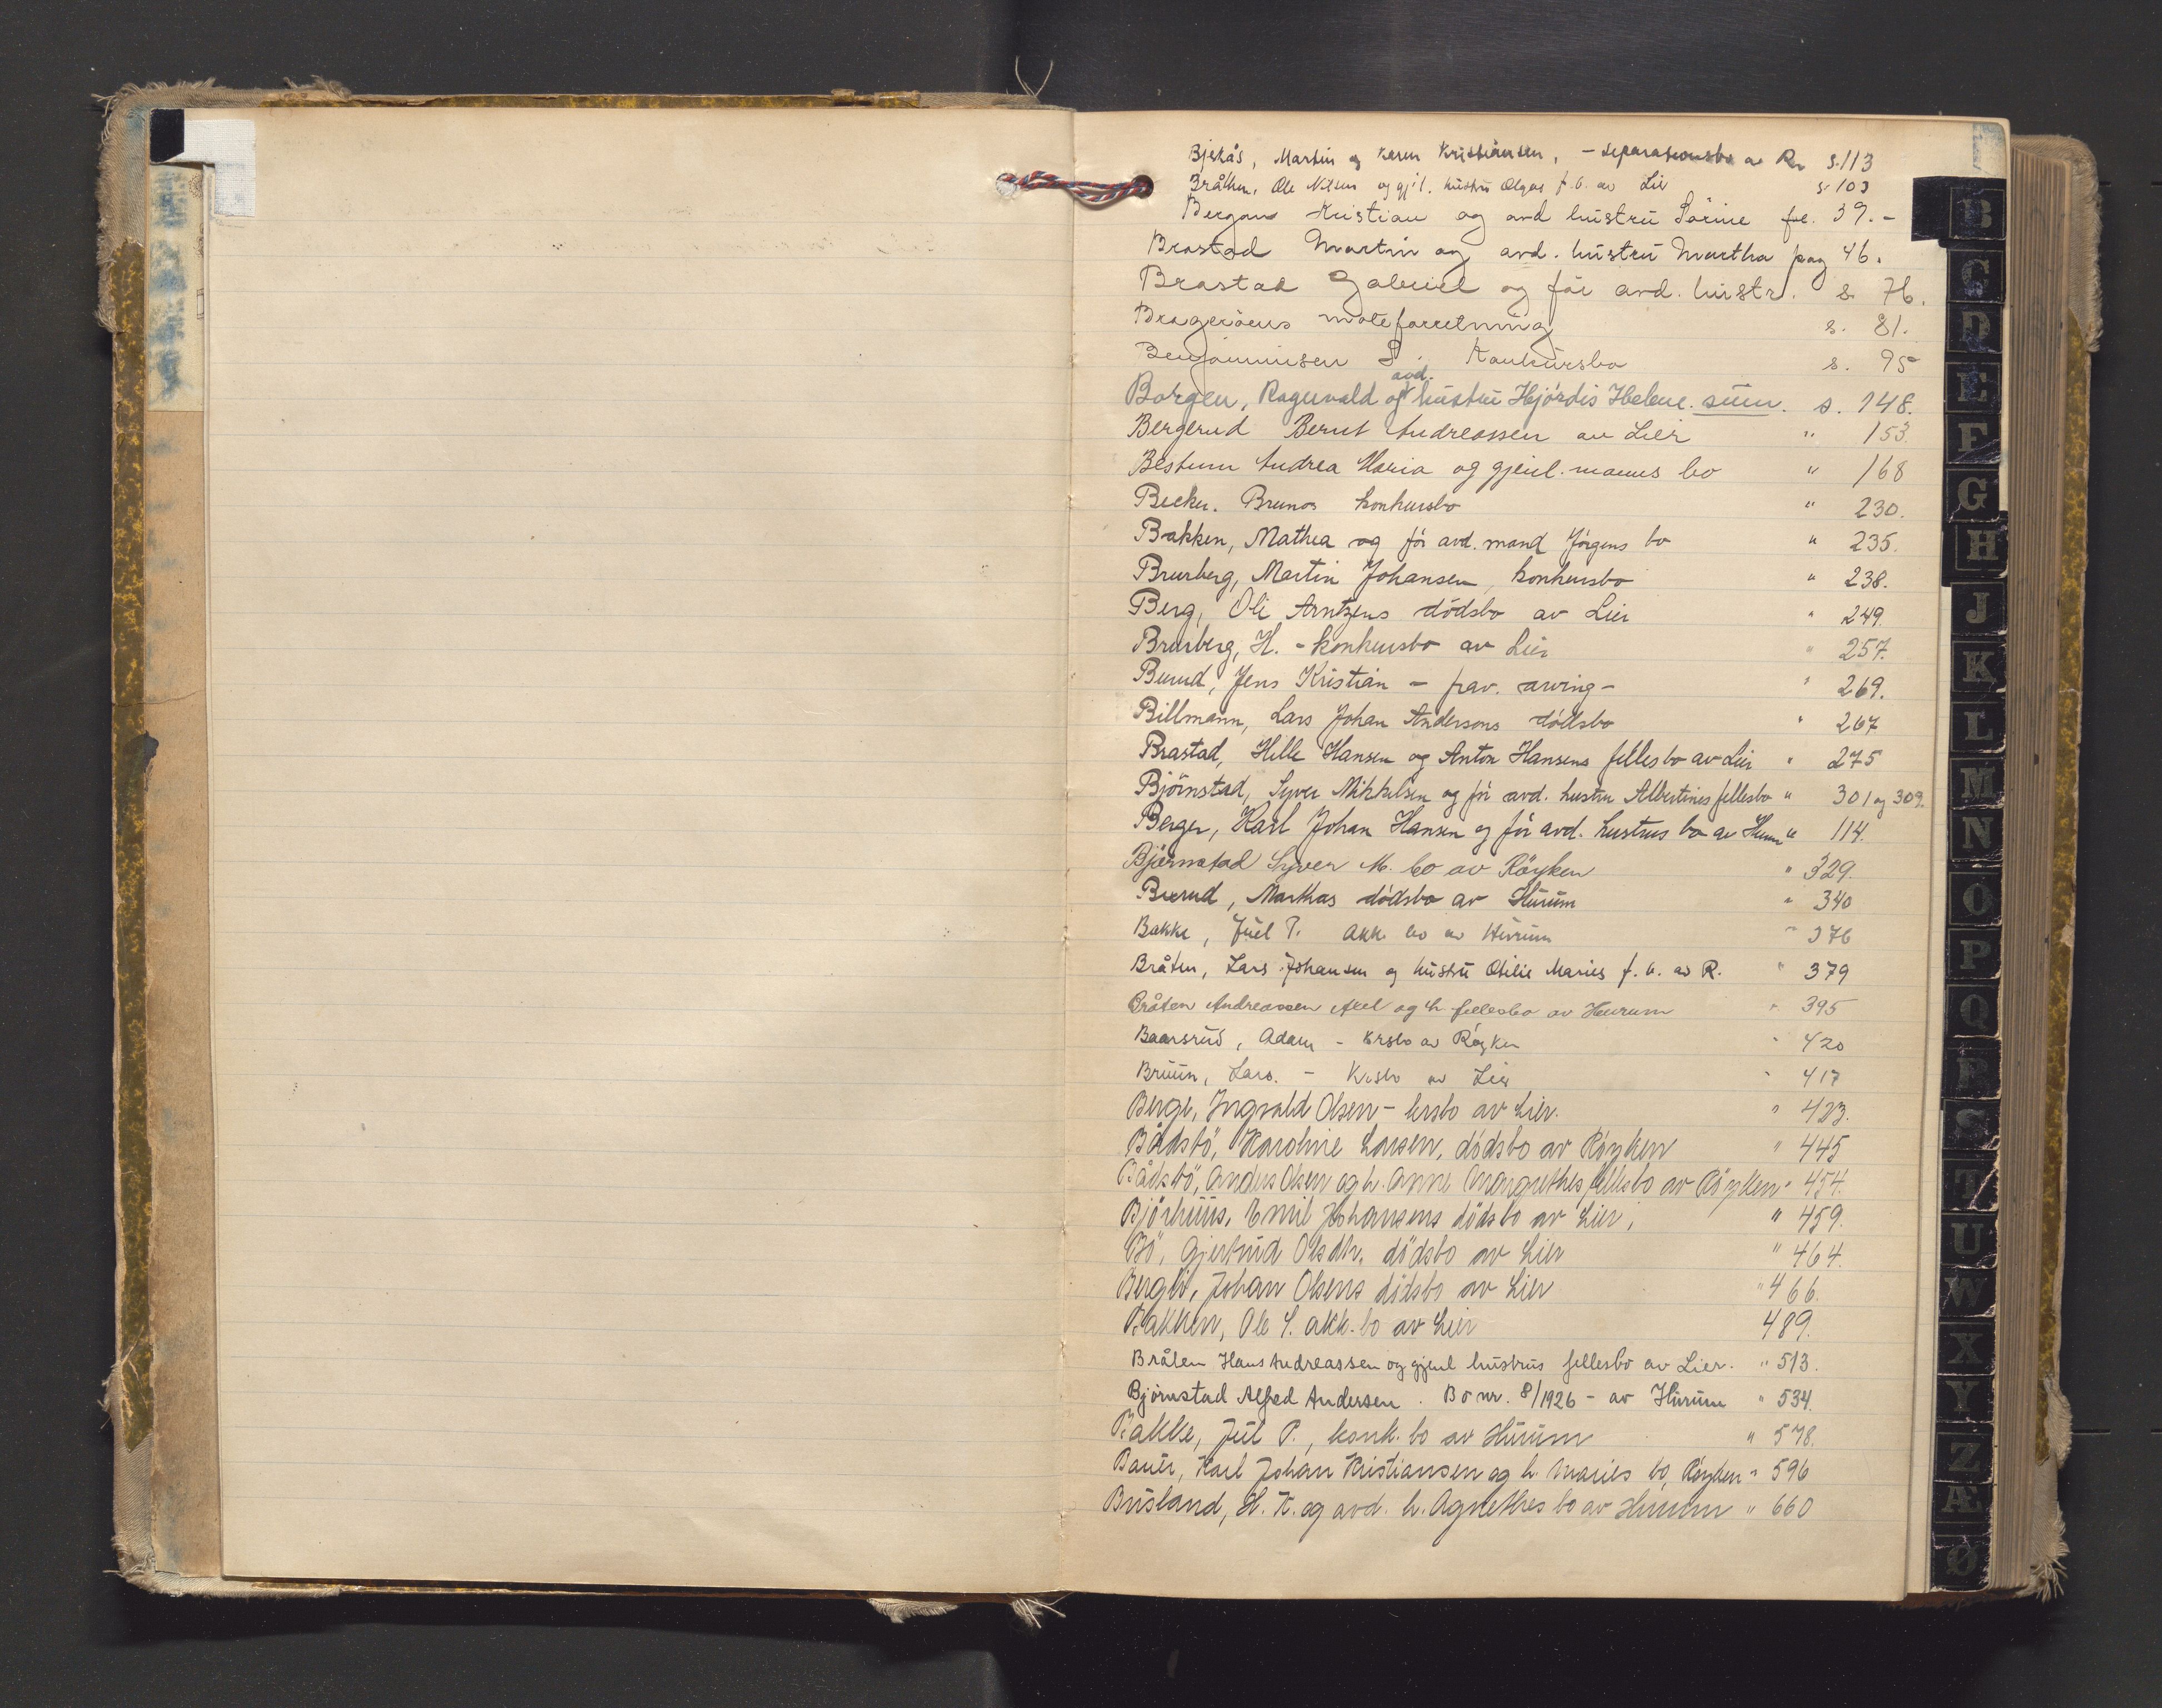 Bjekås, Martin og Karen Kristiansen, - separationsbo av Rn s. 113
Bråthen, Ole Nilsen og gj.l. hustru Olgas f.b. av Lier s. 103
Bergans Kristian og avd hustru Sörine fol. 39.-
Brastad Martin og avd. hustru Martha pag 46.
Brastad Gabriel og før avd. hustr. s. 76.
Brageröens moteforretning s. 81.
Benjaminsen S. Konkursbo s. 95
Borgen, Ragnvald og avd. hustru Hjördis Helene. sum. s. 148.
Bergerud Bernt Andreassen av Lier " 153.
Bestum Andrea Maria og gjenl. manns bo " 168
Becker. Brunos konkursbo " 230.
Bakken, Mathea og för avd. mand Jörgens bo " 235.
Brurberg, Martin Johansen, konkursbo " 238.
Berg, Ole Arntzens dödsbo av Lier " 249.
Brurberg, H. - konkursbo av Lier " 257.
Burud, Jens Kristian - frav. arving - " 269.
Billmann, Lars Johan Andersons dödsbo " 267
Brastad, Helle Hansen og Anton Hansens fellesbo av Lier " 275
Björnstad, Syver Mikkelsen og för avd. hustru Albertines fellesbo " 301 og 309.
Berger, Karl Johan Hansen og för avd. hustrus bo av Hurum " 114.
Björnstad Syver M. bo av Röyken " 329.
Buerud, Marthas dödsbo av Hurum " 340
Bakke, Juel P. akk. bo av Hurum " 376
Bråten, Lars Johansen og hustru Otilie Maries f.b. av R. " 379
Bråten Andreassen Axel og h. fellesbo av Hurum " 395
Baarsrud, Adam - krsbo av Röyken " 420
Bruun, Lars. - Krsbo av Lier " 417
Berge, Ingvald Olsen - krsbo av Lier. " 423.
Bådstö, Karoline Larsen, dödsbo av Röyken " 445
Bådstö, Anders Olsen og h. Anne Margrethes fellesbo av Röyken " 454.
Björhuus, Emil Johansens dödsbo av Lier, " 459.
Bö, Gjertrud Olsdtr. dödsbo av Lier " 464.
Bergli, Johan Olsens dödsbo av Lier " 466.
Bakken, Ole S. akk. bo av Lier 489.
Bråten Hans Andreassen og gjenl hustrus fellesbo av Lier. " 513.
Björnstad Alfred Andersen. Bo nr. 8/1926 - av Hurum " 534.
Bakke, Jul P., konk. bo av Hurum " 578.
Bauer, Karl Johan Kristiansen og h. Maries bo, Röyken " 596
Busland, H. K. og avd. h. Agnethes bo av Hurum " 660
B
C
D
E
F
G
H
J
K
L
M
N
O
P
Q
R
S
T
U
W
X
Y
Z
Æ
Ø